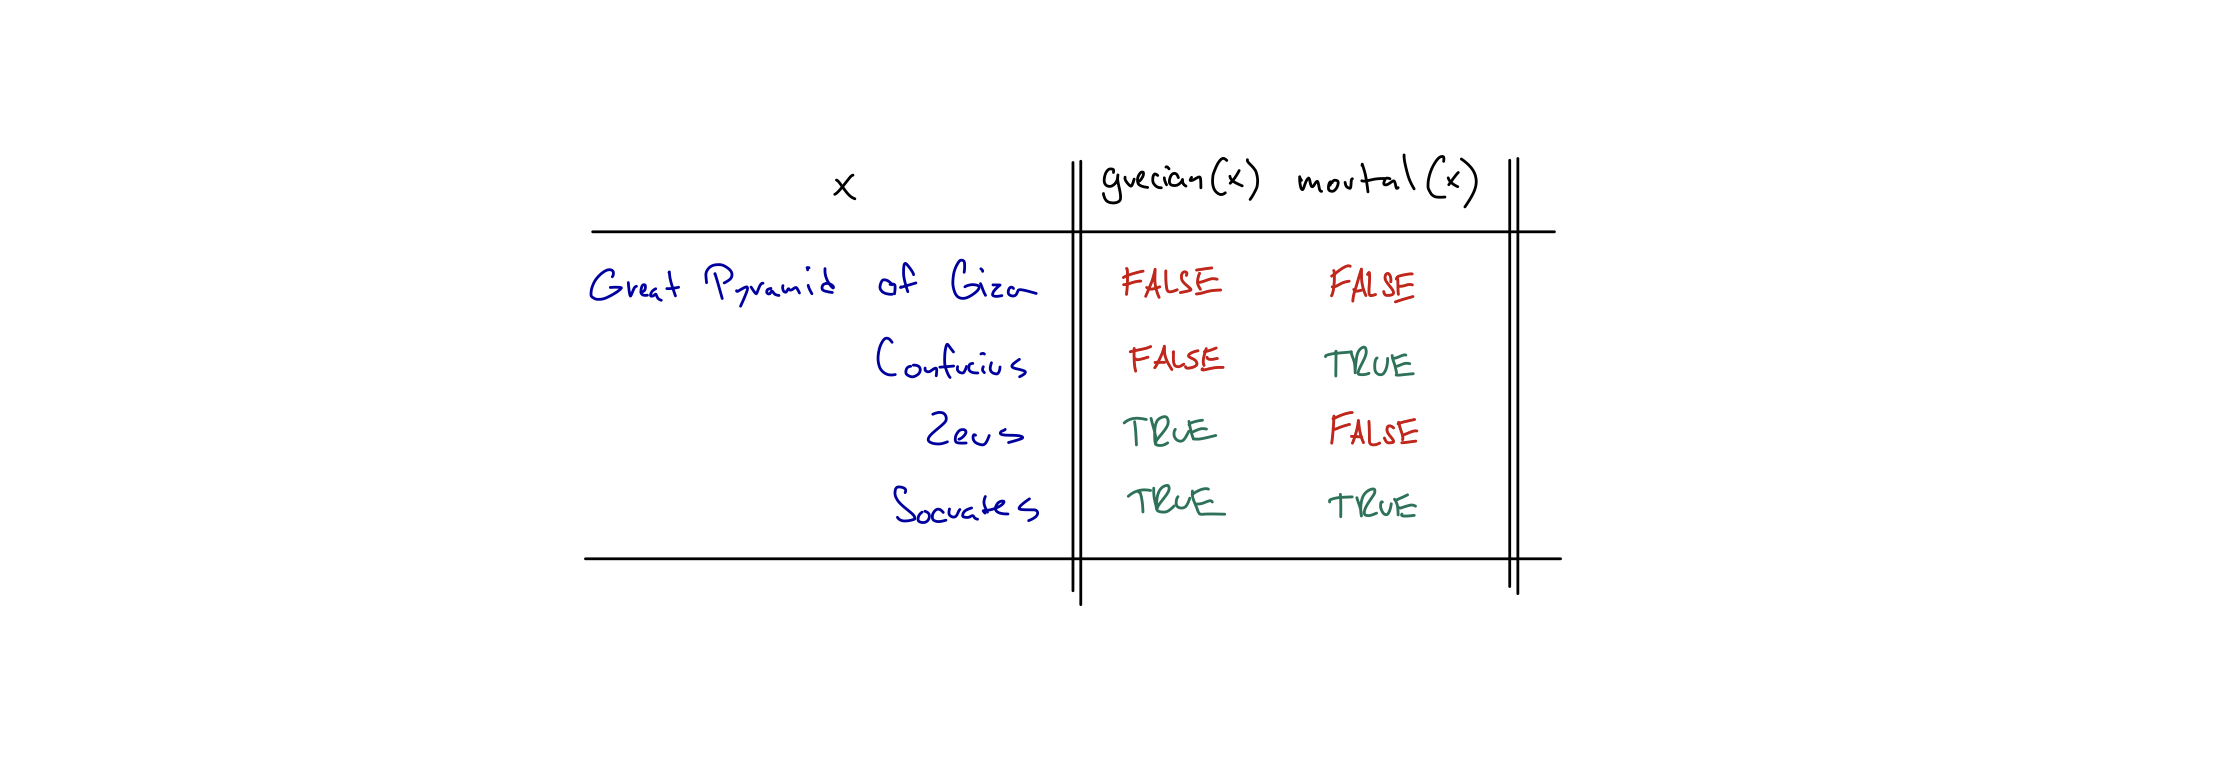 x grecian(x) mortal(x)
Great Pyramid of Giza FALSE FALSE
Confucius FALSE TRUE
Zeus TRUE FALSE
Socrates TRUE TRUE